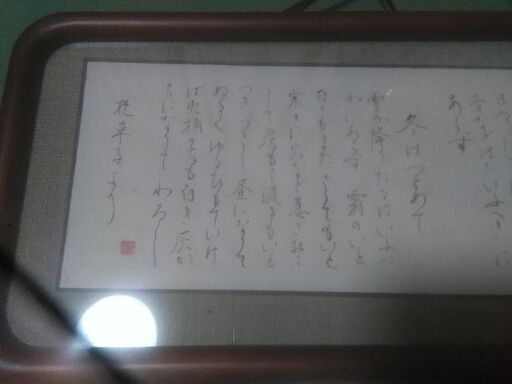 音などはたいふべきに
あらず
冬はつとめて
雪の降りたるはいふべ
きにもあらず 霜のいと
白きもまたさらでもいと
寒きに火など急ぎおこ
して炭もて渡るもいと
つきづきし 昼になりて
ぬるくゆるびもていけ
は火桶の火も白き灰が
ちになりてわろし
枕草子より